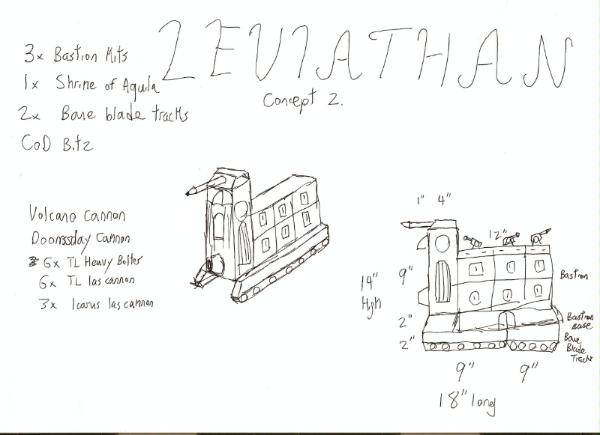 LEVIATHAN
Concept 2.
3x Bastion Kits
1x Shrine of Aquila
2x Bane blade tracks
CoD Bitz
Volcano Cannon
Doomssday Cannon
6x TL Heavy Bolter
6x TL las cannon
3x Icarus las cannon
1" 4"
12"
14"
High
9"
Bastion
2"
Bastion
Base
2"
Bane
Blade
Tracks
9" 9"
18" long